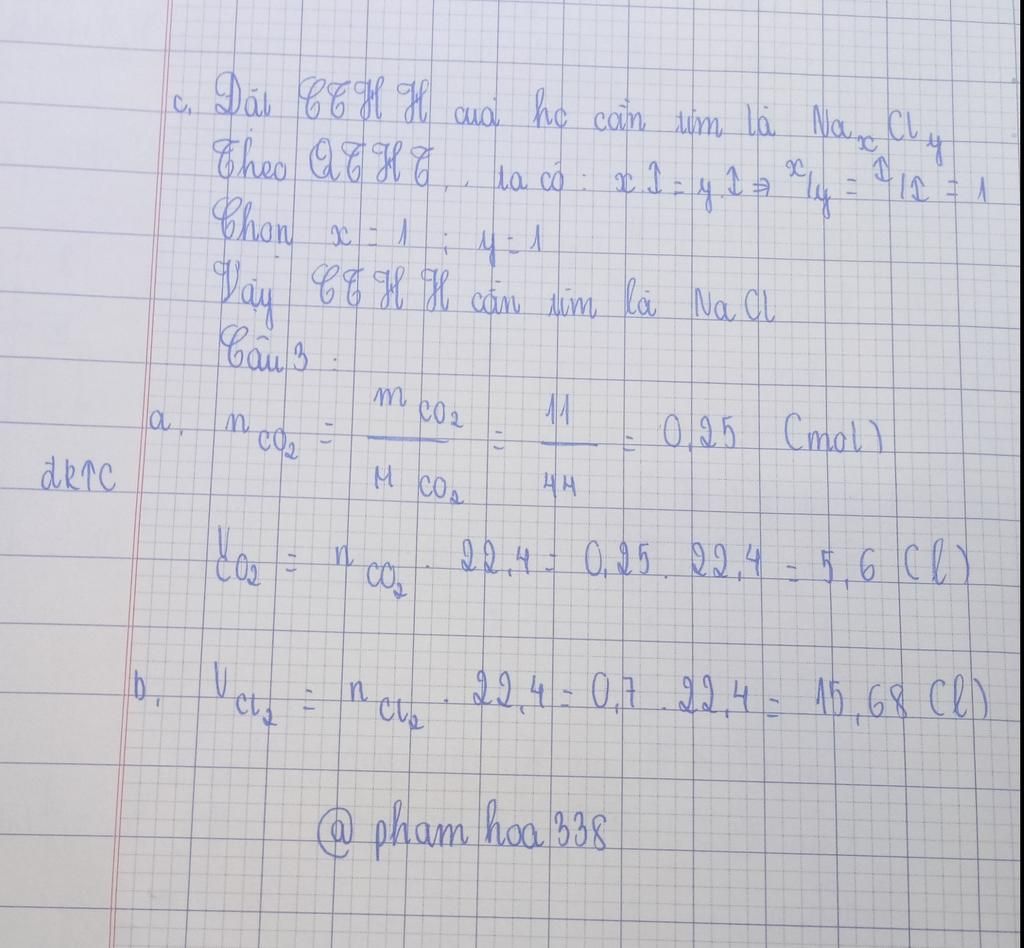 c. Đặt CTHH của hc cần tìm là NaxCly
Theo QTHT.. ta có: x I = y I => x/y = I/I = 1
Chọn x = 1 ; y = 1
Vậy CTHH cần tìm là NaCl
Câu 3:
a. nCO2 = mCO2 / MCO2 = 11 / 44 = 0,25 (mol)
đktc
VCO2 = nCO2 . 22,4 = 0,25 . 22,4 = 5,6 (l)
b. VCl2 = nCl2 . 22,4 = 0,7 . 22,4 = 15,68 (l)
@ pham hoa 338